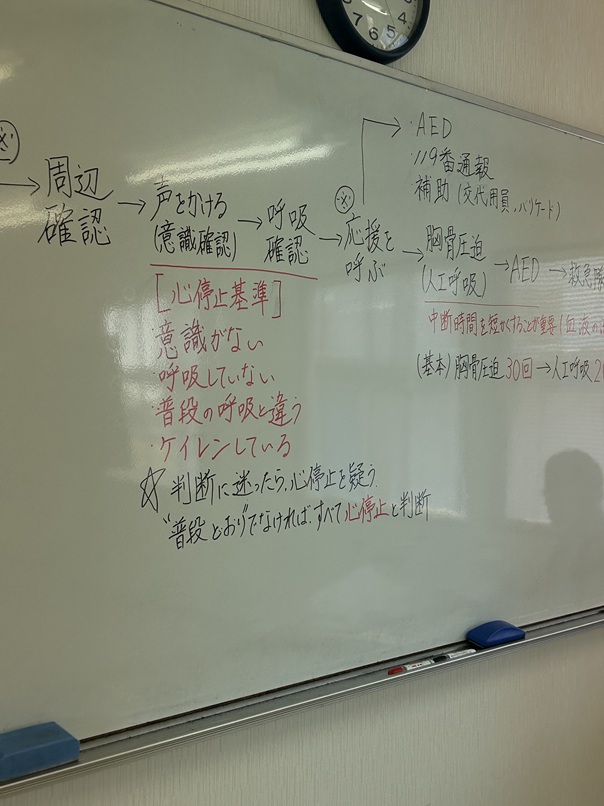 ※
→ 周辺確認 → 声をかける(意識確認) → 呼吸確認 → 応援を呼ぶ → 胸骨圧迫(人工呼吸) → AED → 救急
※
・AED
・119番通報
・補助(交代用員、バリケード)
[心停止基準]
・意識がない
・呼吸していない
・普段の呼吸と違う
・ケイレンしている
☆判断に迷ったら、心停止を疑う.
"普段どおり"でなければ、すべて心停止と判断
中断時間を短かくすることが重要(血液の
(基本)胸骨圧迫30回→人工呼吸2
6
7
8
5
4